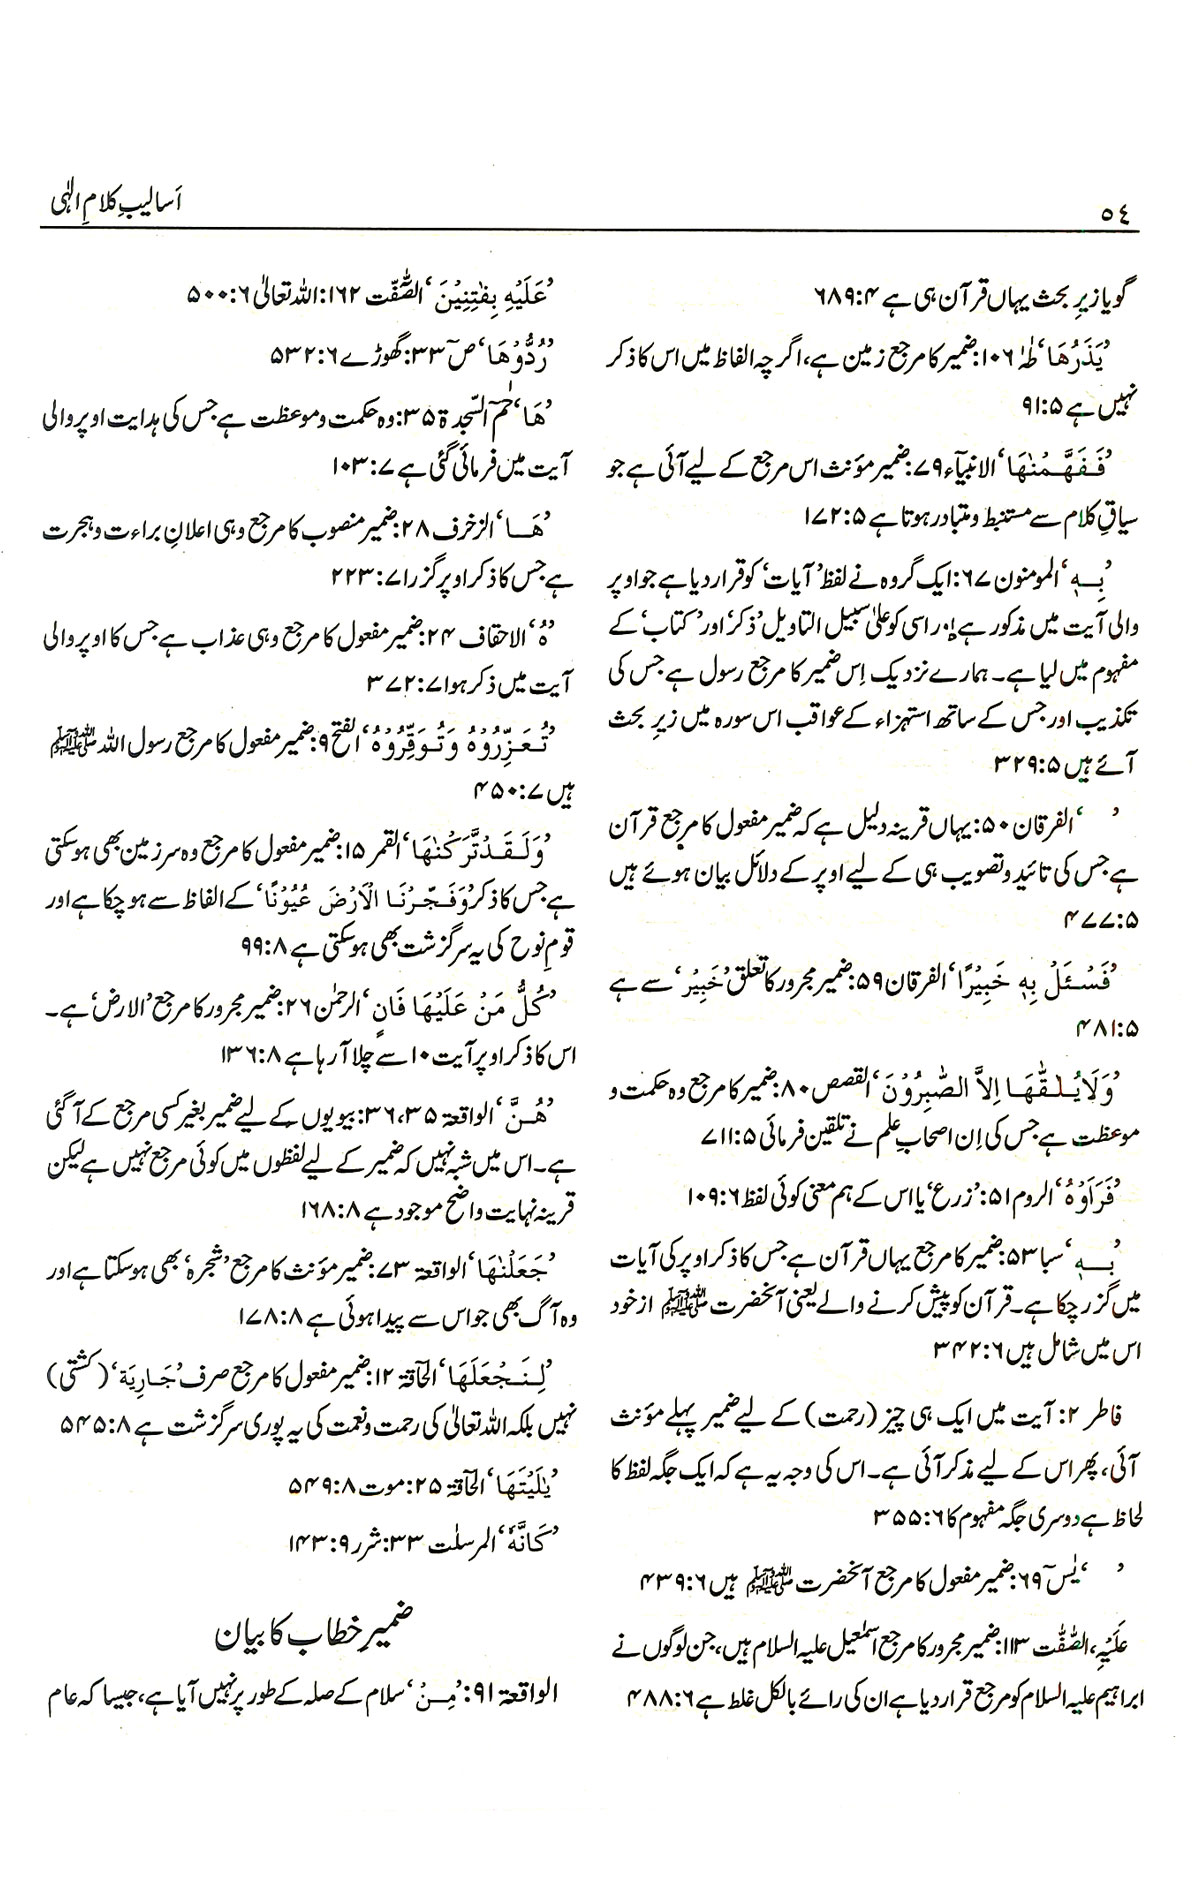 ۵۴
اَسالیبِ کلامِ الٰہی
گویا زیرِ بحث یہاں قرآن ہی ہے ۴:۶۸۹
’یَذَرُھَا‘ طٰہٰ ۱۰۶: ضمیر کا مرجع زمین ہے، اگرچہ الفاظ میں اس کا ذکر
نہیں ہے ۵:۹۱
’فَفَهَّمْنٰهَا‘ الانبیآء ۷۹: ضمیر مؤنث اس مرجع کے لیے آئی ہے جو
سیاقِ کلام سے مستنبط و متبادر ہوتا ہے ۵:۱۷۲
’بِہٖ‘ المومنون ۶۷: ایک گروہ نے لفظ ’آیات‘ کو قرار دیا ہے جو اوپر
والی آیت میں مذکور ہے اور اسی کو علیٰ سبیل التاویل ’ذکر‘ اور ’کتاب‘ کے
مفہوم میں لیا ہے۔ ہمارے نزدیک اِس ضمیر کا مرجع رسول ہے جس کی
تکذیب اور جس کے ساتھ استہزاء کے عواقب اس سورہ میں زیرِ بحث
آئے ہیں ۵:۳۲۹
’ ‘ الفرقان ۵۰: یہاں قرینہ دلیل ہے کہ ضمیر مفعول کا مرجع قرآن
ہے جس کی تائید و تصویب ہی کے لیے اوپر کے دلائل بیان ہوئے ہیں
۵:۴۷۷
’فَسْـَٔلْ بِهٖ خَبِیْرًا‘ الفرقان ۵۹: ضمیر مجرور کا تعلق ’خَبِیْر‘ سے ہے
۵:۴۸۱
’وَلَا یُلَقّٰهَا اِلَّا الصّٰبِرُوْنَ‘ القصص ۸۰: ضمیر کا مرجع وہ حکمت و
موعظت ہے جس کی اِن اصحابِ علم نے تلقین فرمائی ۵:۷۱۱
’فَرَاَوْهُ‘ الروم ۵۱: ’زرع‘ یا اس کے ہم معنی کوئی لفظ ۶:۱۰۹
’بِہٖ‘ سبا ۵۳: ضمیر کا مرجع یہاں قرآن ہے جس کا ذکر اوپر کی آیات
میں گزر چکا ہے۔ قرآن کو پیش کرنے والے یعنی آنحضرت ﷺ ازخود
اس میں شامل ہیں ۶:۳۴۲
فاطر ۲: آیت میں ایک ہی چیز (رحمت) کے لیے ضمیر پہلے مؤنث
آئی، پھر اس کے لیے مذکر آئی ہے۔ اس کی وجہ یہ ہے کہ ایک جگہ لفظ کا
لحاظ ہے دوسری جگہ مفہوم کا ۶:۳۵۵
’ ‘ یٰسٓ ۶۹: ضمیر مفعول کا مرجع آنحضرت ﷺ ہیں ۶:۴۳۹
عَلَیْہِ، الصّٰفّٰت ۱۱۳: ضمیر مجرور کا مرجع اسمٰعیل علیہ السلام ہیں، جن لوگوں نے
ابراہیم علیہ السلام کو مرجع قرار دیا ہے ان کی رائے بالکل غلط ہے ۶:۴۸۸
’عَلَیْهِ بِفٰتِنِیْنَ‘ الصّٰفّٰت ۱۶۲: اللہ تعالیٰ ۶:۵۰۰
’رُدُّوْهَا‘ صٓ ۳۳: گھوڑے ۶:۵۳۲
’هَا‘ حٰمٓ السّجدۃ ۳۵: وہ حکمت و موعظت ہے جس کی ہدایت اوپر والی
آیت میں فرمائی گئی ہے ۷:۱۰۳
’هَا‘ الزخرف ۲۸: ضمیر منصوب کا مرجع وہی اعلانِ براءت و ہجرت
ہے جس کا ذکر اوپر گزرا ۷:۲۲۳
’هُ‘ الاحقاف ۲۴: ضمیر مفعول کا مرجع وہی عذاب ہے جس کا اوپر والی
آیت میں ذکر ہوا ۷:۳۷۲
’تُعَزِّرُوْهُ وَتُوَقِّرُوْهُ‘ الفتح ۹: ضمیر مفعول کا مرجع رسول اللہ ﷺ
ہیں ۷:۴۵۰
’وَلَقَدْ تَّرَكْنٰهَا‘ القمر ۱۵: ضمیر مفعول کا مرجع وہ سرزمین بھی ہوسکتی
ہے جس کا ذکر ’وَفَجَّرْنَا الْاَرْضَ عُیُوْنًا‘ کے الفاظ سے ہو چکا ہے اور
قومِ نوح کی یہ سرگزشت بھی ہوسکتی ہے ۸:۹۹
’كُلُّ مَنْ عَلَیْهَا فَانٍ‘ الرحمٰن ۲۶: ضمیر مجرور کا مرجع ’الارض‘ ہے۔
اس کا ذکر اوپر آیت ۱۰ سے چلا آ رہا ہے ۸:۱۳۶
’هُنَّ‘ الواقعۃ ۳۵، ۳۶: بیویوں کے لیے ضمیر بغیر کسی مرجع کے آ گئی
ہے۔ اس میں شبہ نہیں کہ ضمیر کے لیے لفظوں میں کوئی مرجع نہیں ہے لیکن
قرینہ نہایت واضح موجود ہے ۸:۱۶۸
’جَعَلْنٰهَا‘ الواقعۃ ۷۳: ضمیر مؤنث کا مرجع ’شجرہ‘ بھی ہوسکتا ہے اور
وہ آگ بھی جو اس سے پیدا ہوئی ہے ۸:۱۷۸
’لِنَجْعَلَهَا‘ الحآقۃ ۱۲: ضمیر مفعول کا مرجع صرف ’جَارِیَۃ‘ (کشتی)
نہیں بلکہ اللہ تعالیٰ کی رحمت و نعمت کی یہ پوری سرگزشت ہے ۸:۵۴۵
’یٰلَیْتَهَا‘ الحآقۃ ۲۵: موت ۸:۵۴۹
’كَاَنَّهٗ‘ المرسلٰت ۳۳: شرر ۹:۱۴۳
ضمیرِ خطاب کا بیان
الواقعۃ ۹۱: ’مِنْ‘ سلام کے صلہ کے طور پر نہیں آیا ہے، جیسا کہ عام